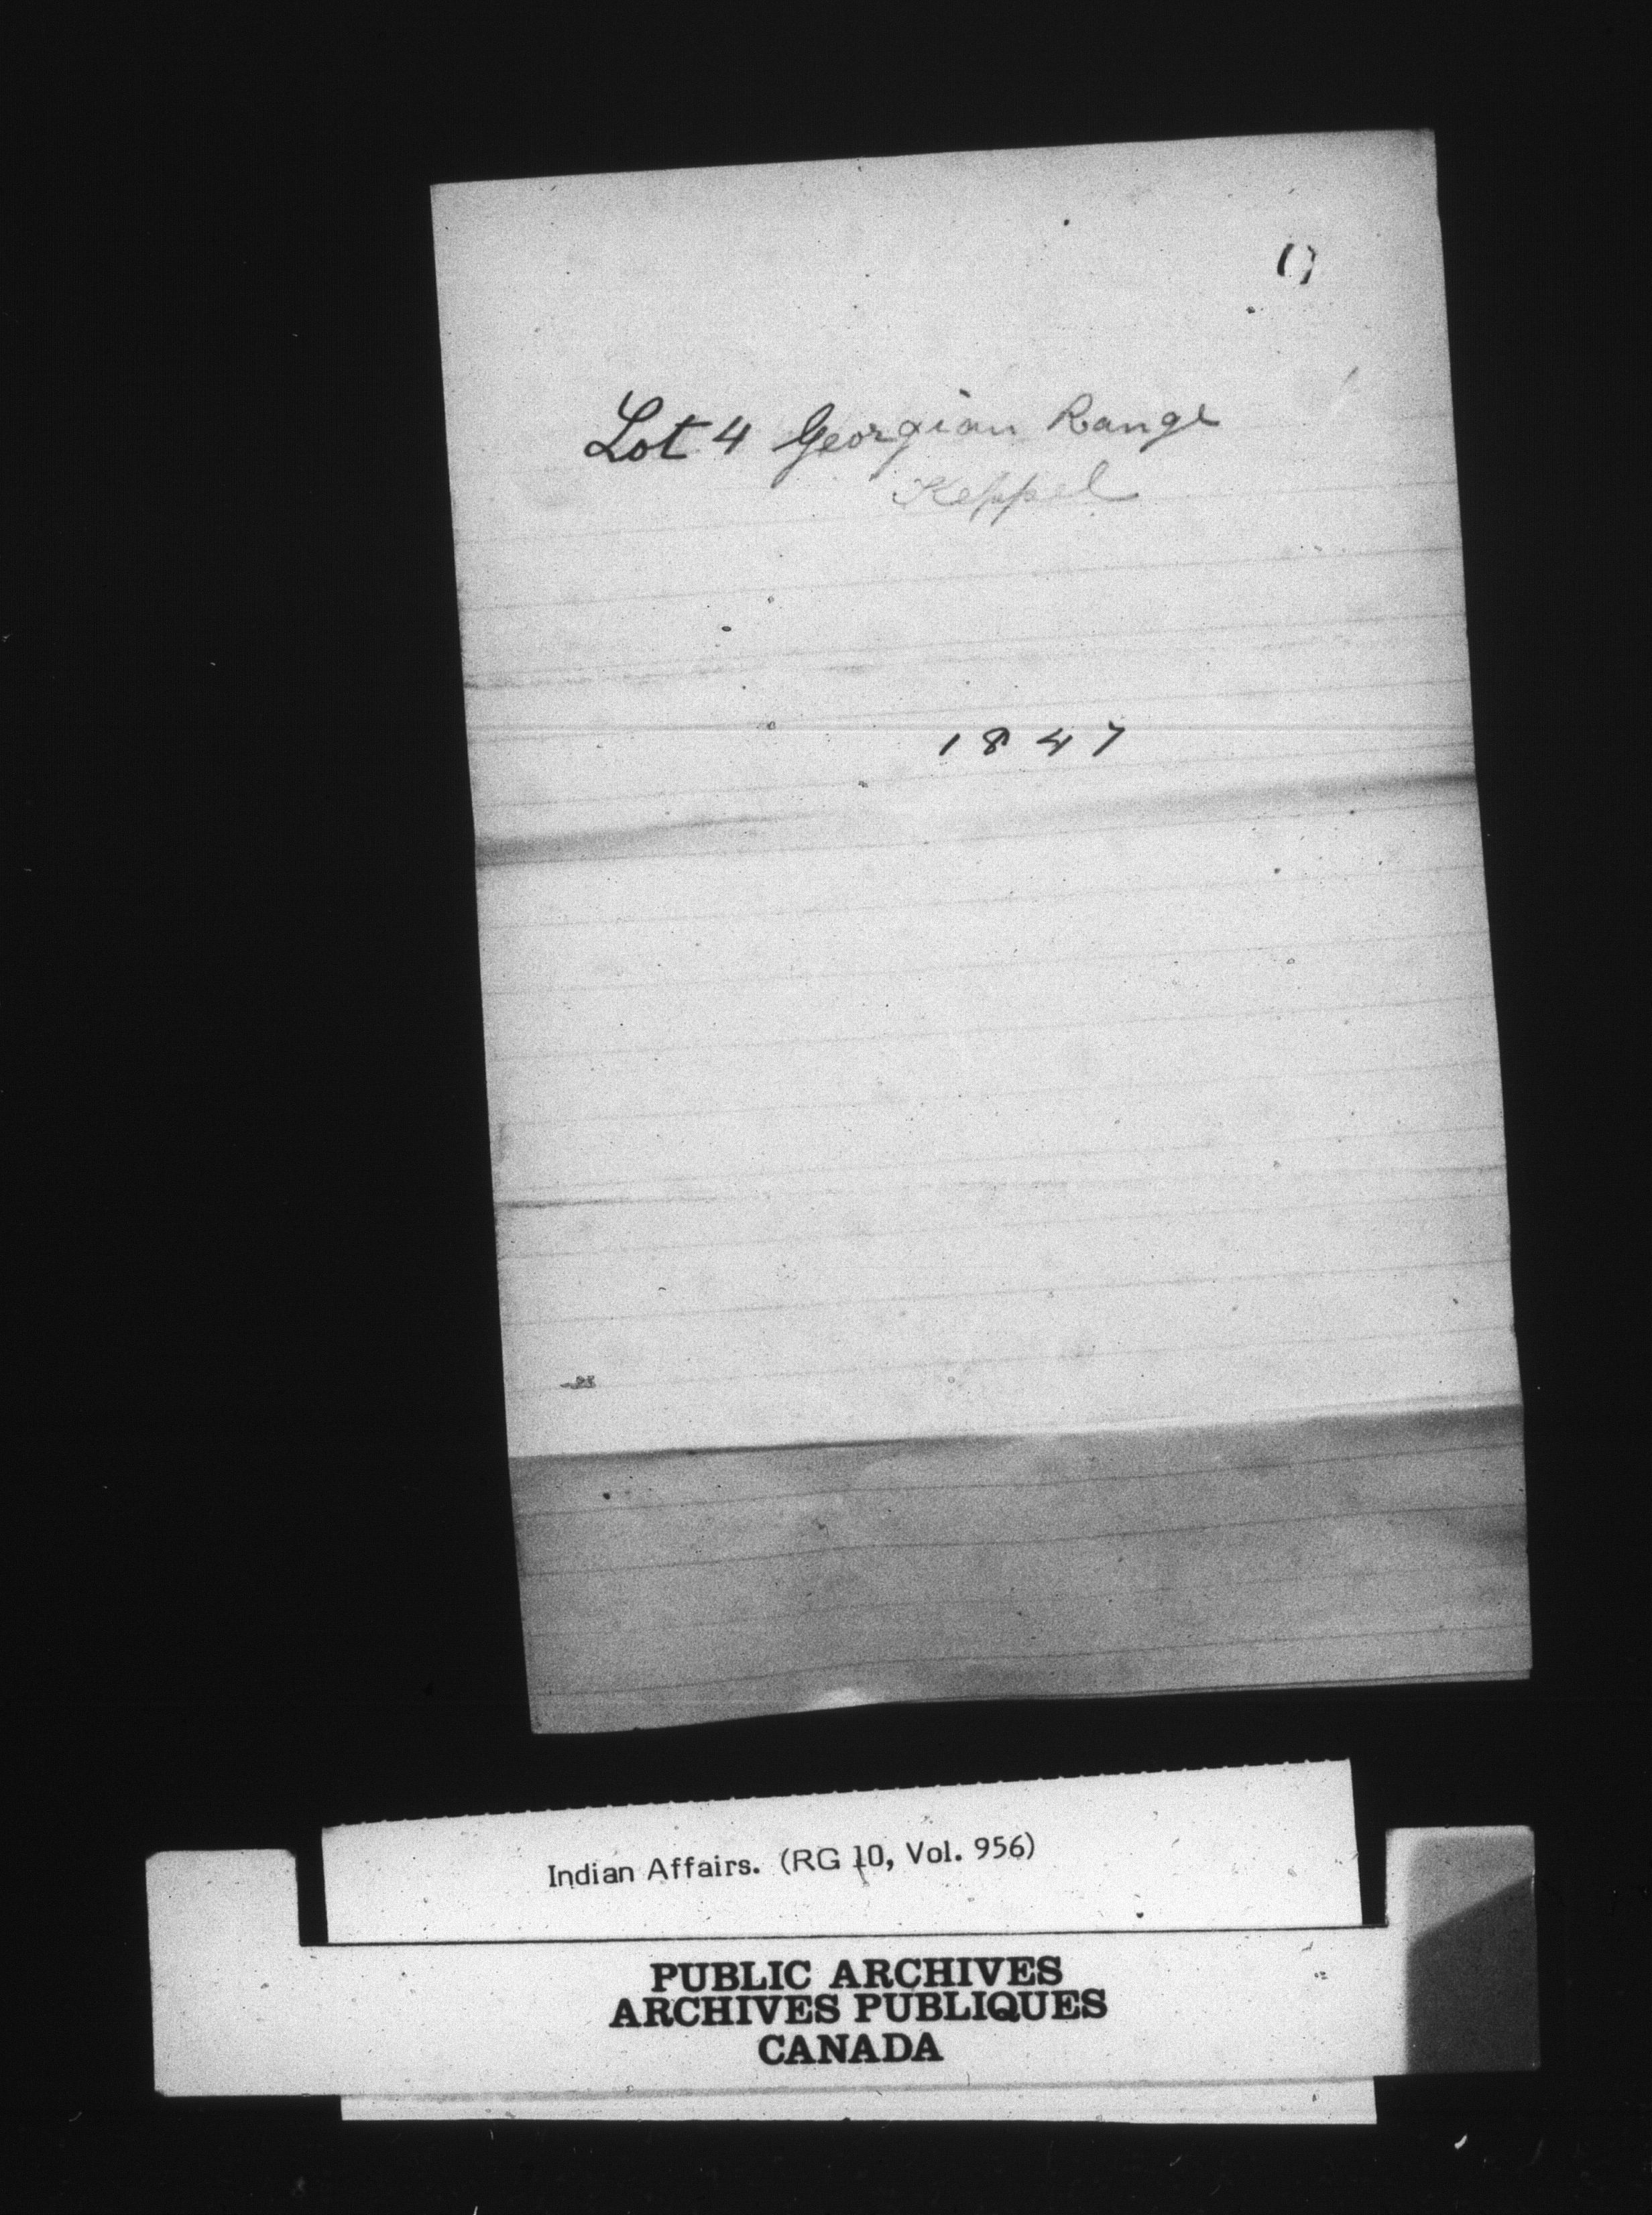 Lot 4 Georgian Range
Keppel
1847
Indian Affairs. (RG 10, Vol. 956)
PUBLIC ARCHIVES
ARCHIVES PUBLIQUES
CANADA